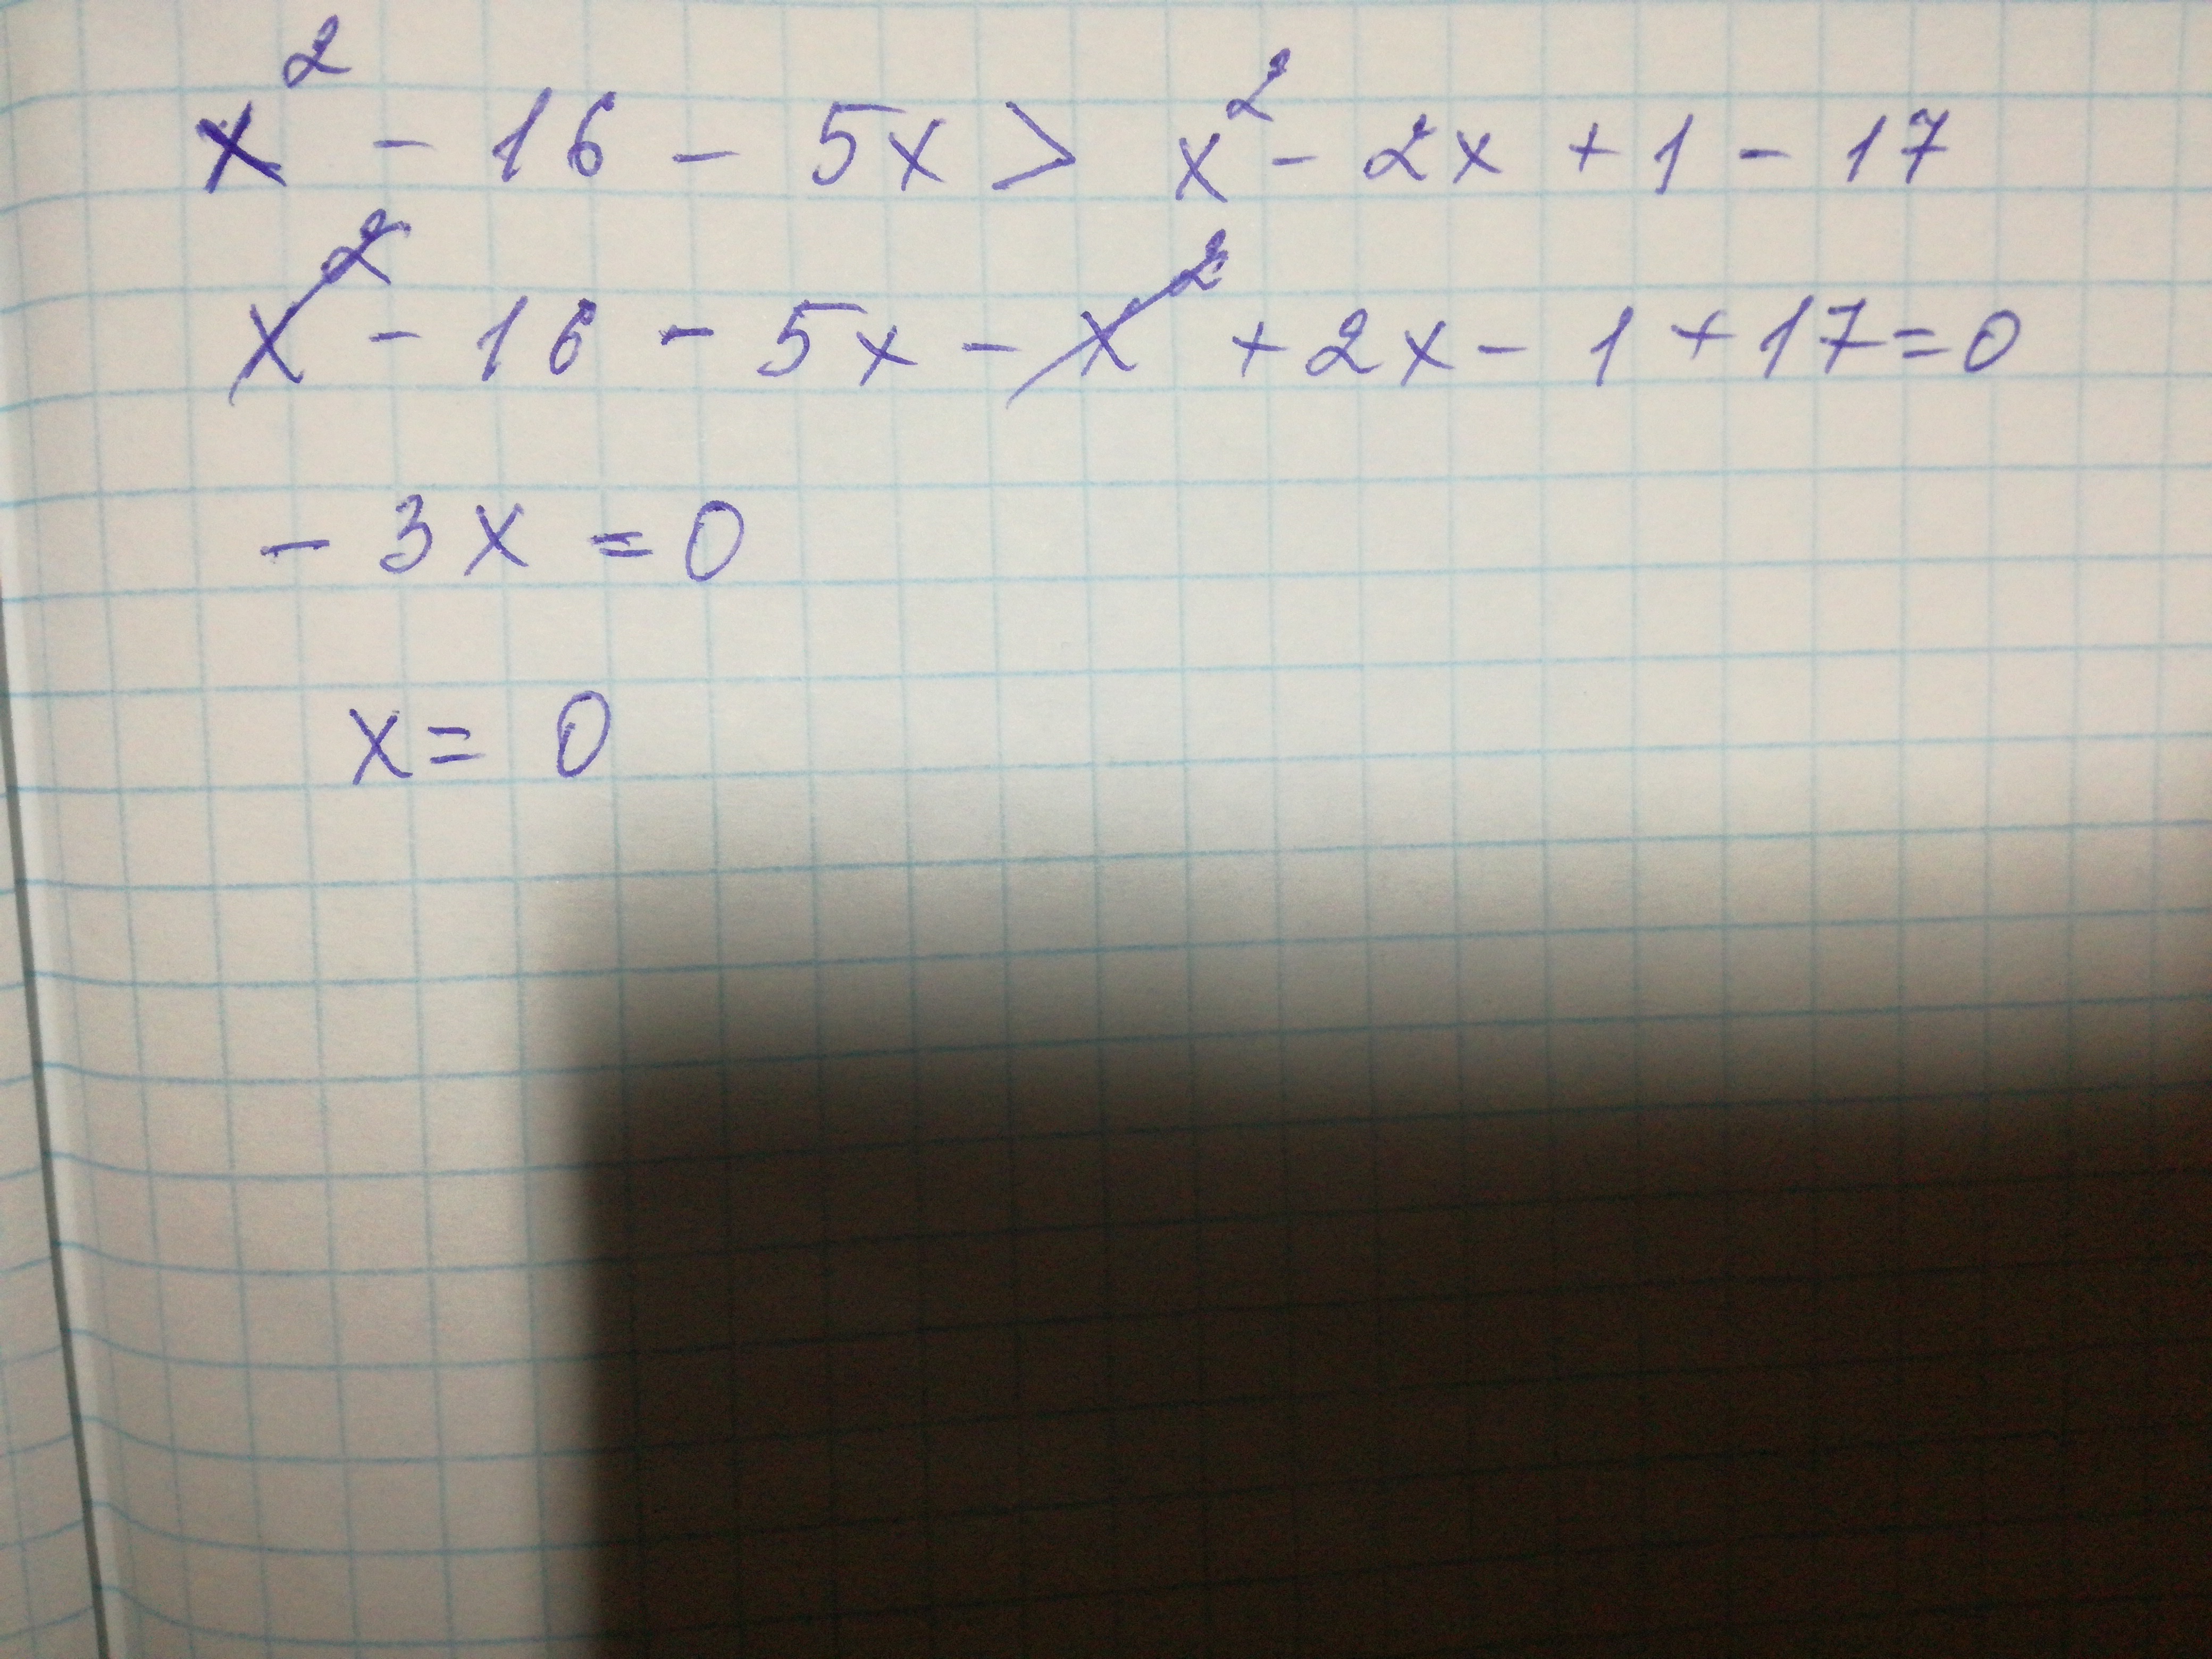 x² - 16 - 5x > x² - 2x + 1 - 17
x² - 16 - 5x - x² + 2x - 1 + 17 = 0
- 3x = 0
x = 0